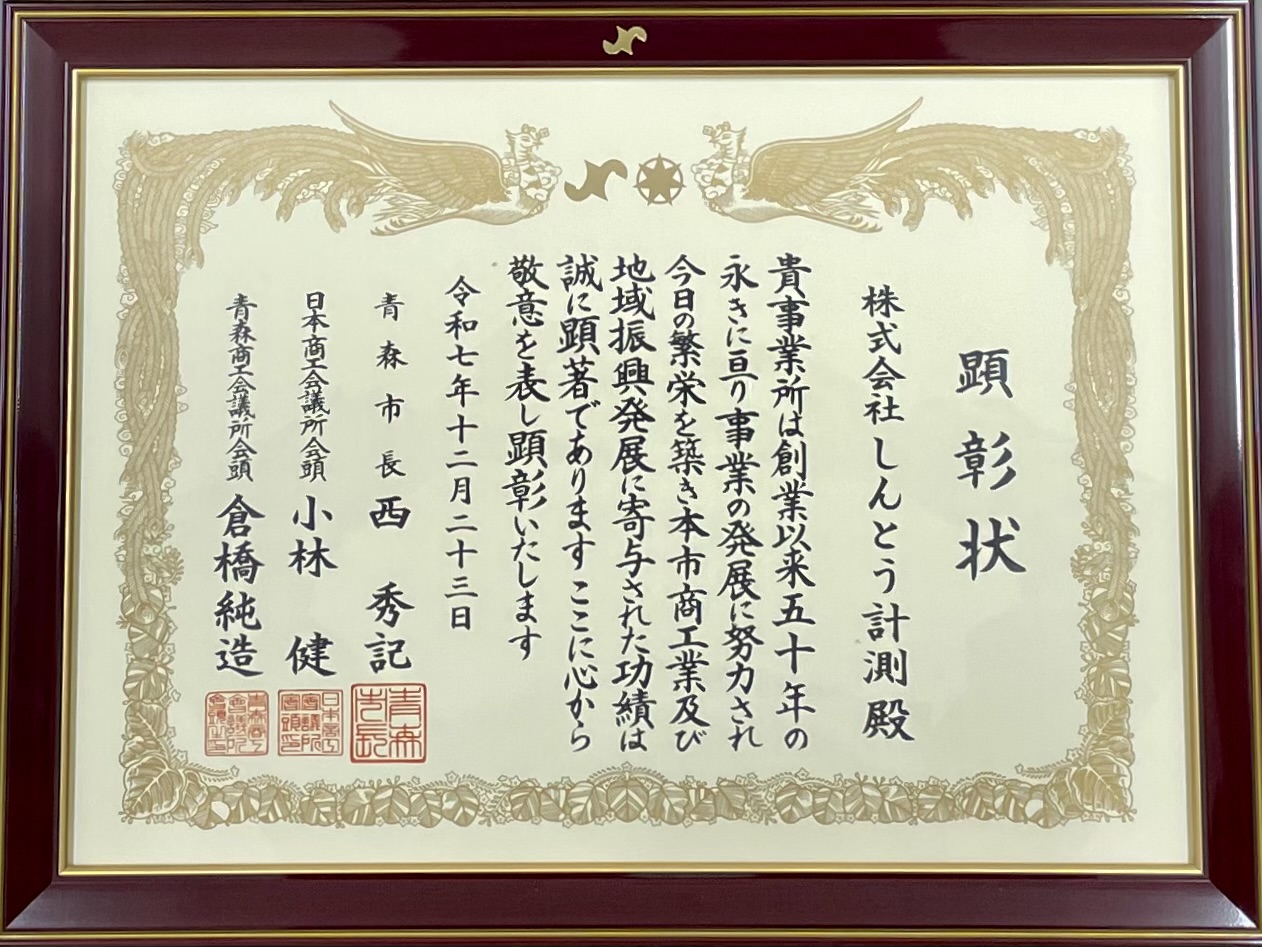 顕彰状
株式会社しんとう計測殿
貴事業所は創業以来五十年の
永きに亘り事業の発展に努力され
今日の繁栄を築き本市商工業及び
地域振興発展に寄与された功績は
誠に顕著であります ここに心から
敬意を表し顕彰いたします
令和七年十二月二十三日
青森市長 西 秀記
日本商工会議所会頭 小林 健
青森商工会議所会頭 倉橋純造
青森市長